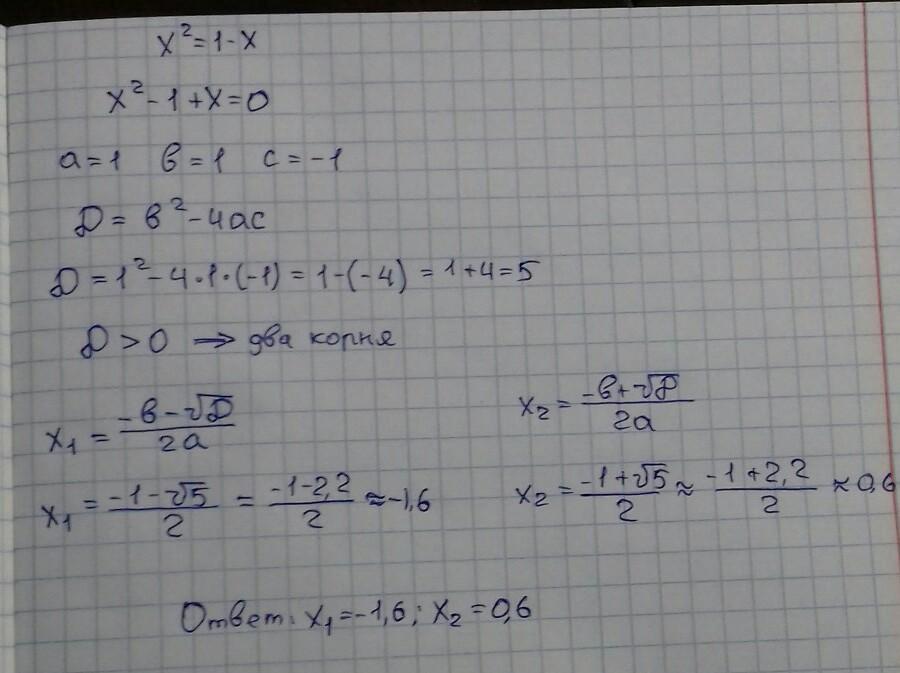 x² = 1 - x
x² - 1 + x = 0
a = 1 в = 1 c = -1
D = в² - 4ac
D = 1² - 4·1·(-1) = 1 - (-4) = 1 + 4 = 5
D > 0 ⇒ два корня
x₁ = (-в - √D)/(2a) x₂ = (-в + √D)/(2a)
x₁ = (-1 - √5)/2 = (-1 - 2,2)/2 ≈ -1,6 x₂ = (-1 + √5)/2 ≈ (-1 + 2,2)/2 ≈ 0,6
Ответ: x₁ = -1,6; x₂ = 0,6